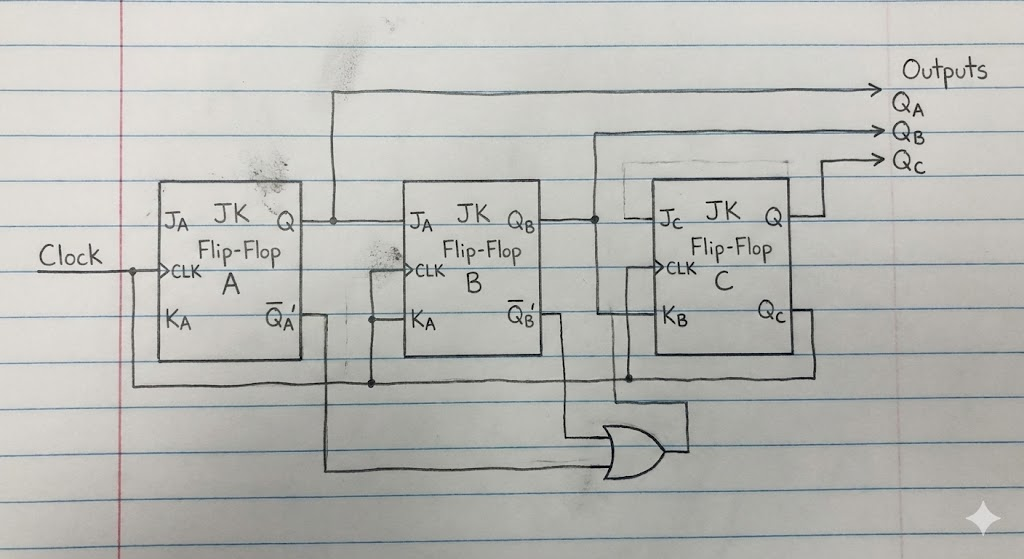 Outputs
QA
QB
QC
Clock
JA JK Q
Flip-Flop
CLK
A
KA Q̅A'
JA JK QB
Flip-Flop
CLK
B
KA Q̅B'
JC JK Q
Flip-Flop
CLK
C
KB QC